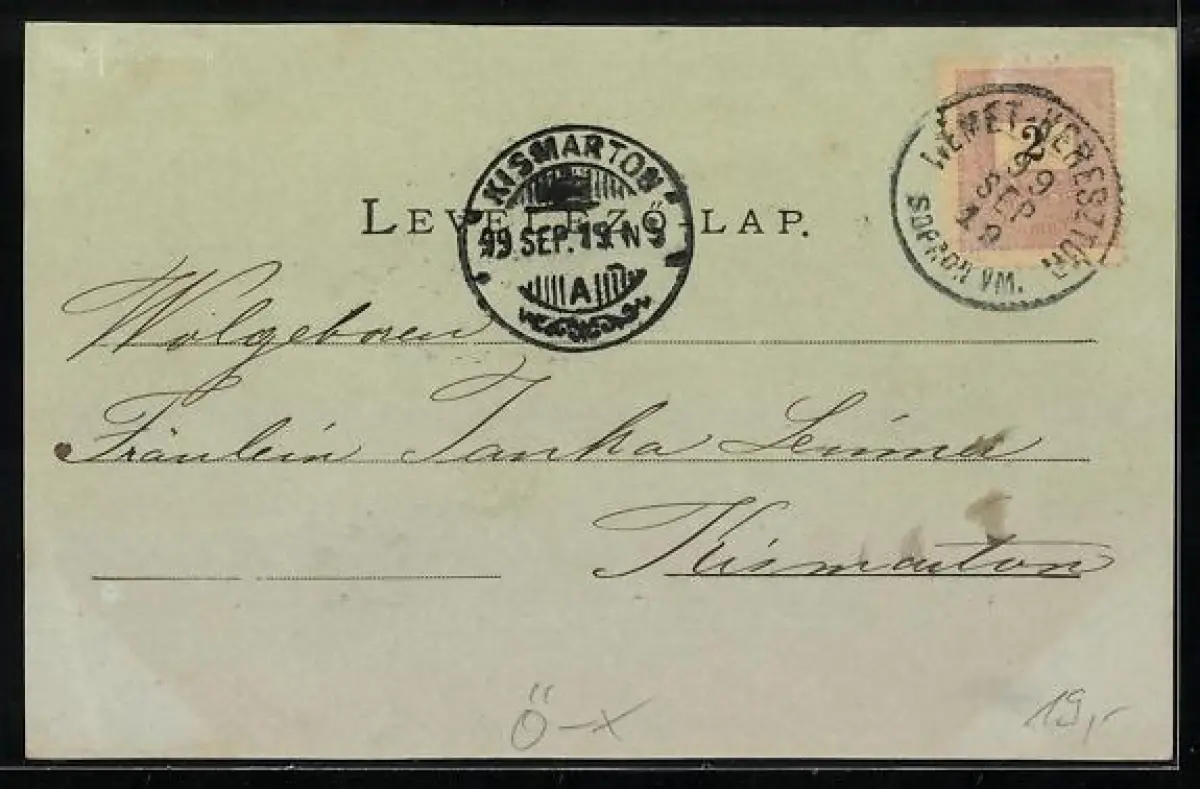 NÉMET-KERESZTÚR
2
99
SEP
19
SOPRON VM.
KISMARTON
99 SEP. 19. N 9
A
LEVELEZŐ-LAP.
Wolgeboren
Fräulein Janka
Kismarton
Ö-x
19,-